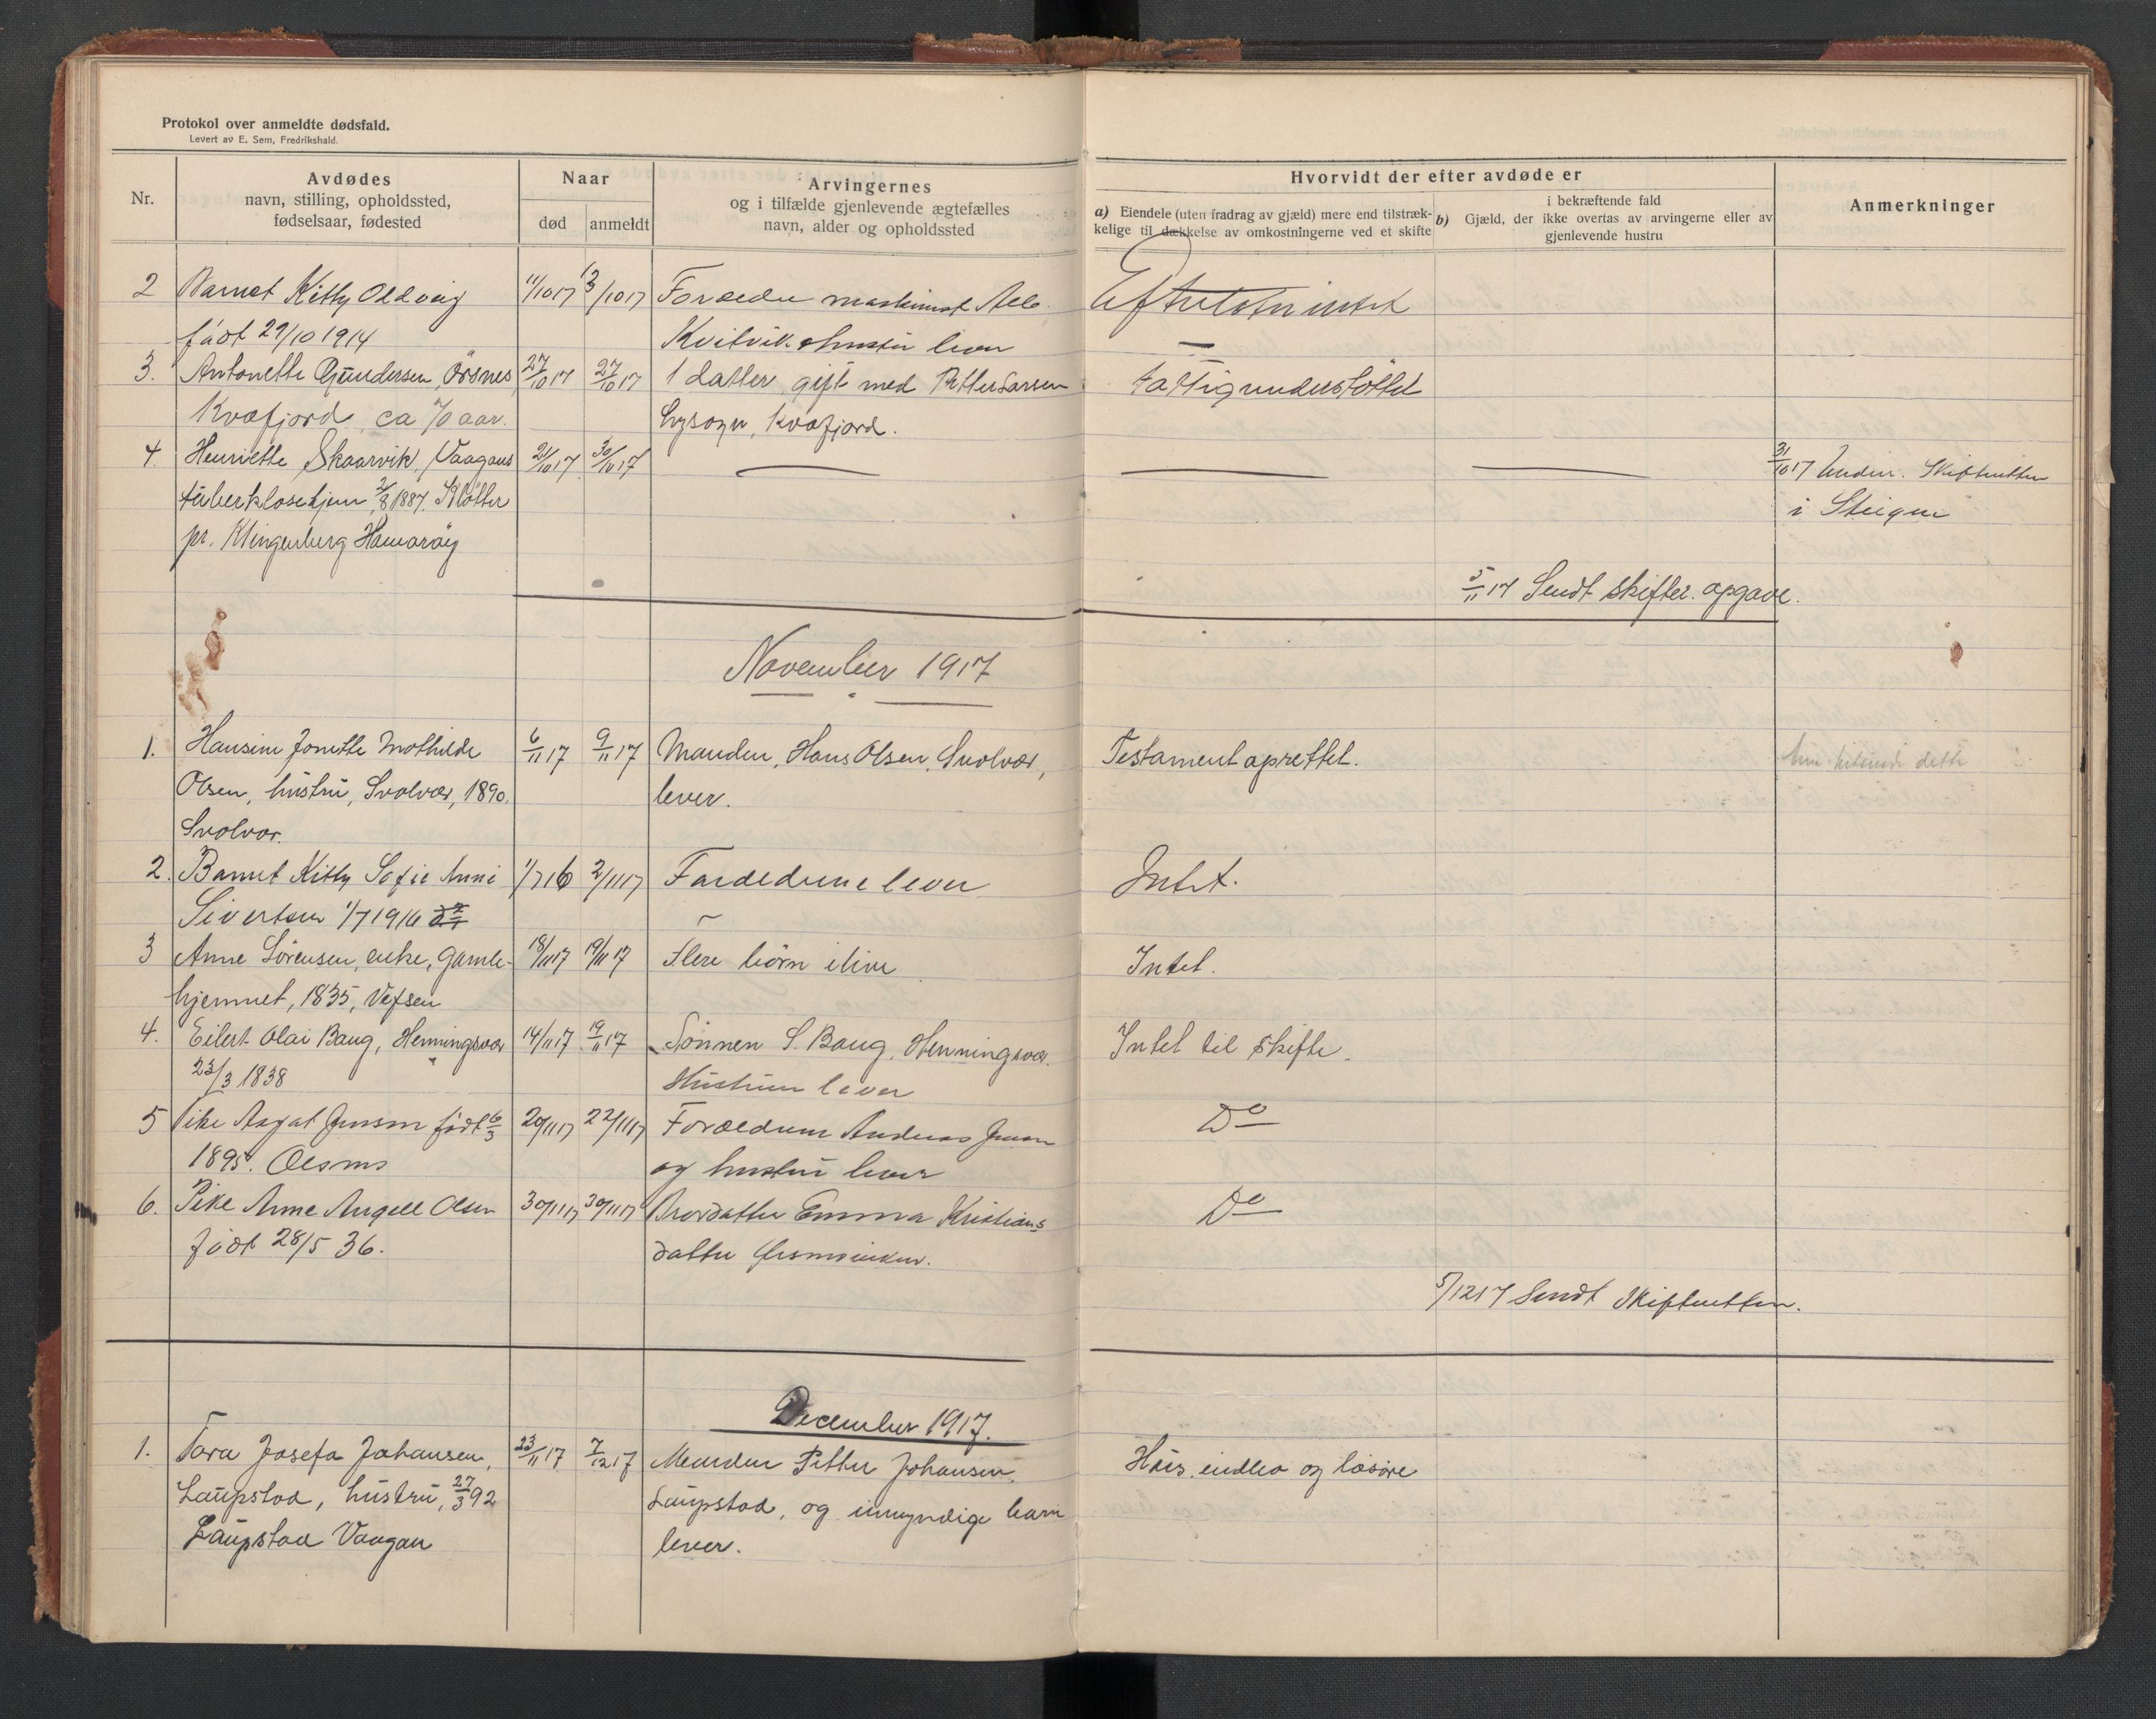 Protokol over anmeldte dødsfald.
Levert av E. Sem, Fredrikshald.
Nr.
Avdødes
navn, stilling, opholdssted,
fødselsaar, fødested
Naar
død
anmeldt
Arvingernes
og i tilfælde gjenlevende ægtefælles
navn, alder og opholdssted
Hvorvidt der efter avdøde er
a) Eiendele (uten fradrag av gjæld) mere end tilstræk-
kelige til dækkelse av omkostningerne ved et skifte
i bekræftende fald
b) Gjæld, der ikke overtas av arvingerne eller av
gjenlevende hustru
Anmerkninger
2 Barnet Kitty Oldveig 11/10 17 13/10 17 Forældre maskinist
født 29/10 1914 Kvitvik & hustru lever
3. Antonette Gundersen, Örsnes 27/10 17 27/10 17 1 datter gift med Petter Larsen fattigunderstöttet
Kvæfjord, ca 70 aar. Kvæfjord.
4. Henriette Skaarvik, Vaagans 21/10 17 30/10 17 31/10 17 Skifteretten
tuberklosehjem, 2/8 1887. Slötter i Steigen
pr. Klingenberg Hamaröy
5/11 17 Sendt skifter. opgave.
November 1917
1. Hansine Jonette Mathilde 6/11 17 9/11 17 Manden, Hans Olsen, Svolvær, Testament oprettet. dette
Olsen, hustru, Svolvær, 1890. lever.
Svolvær.
2. Barnet Kitty Sofie Anni 1/7 16 2/11 17 Forældrene lever Intet.
Sivertsen 1/7 1916
3 Anne Sörensen, enke, Gamle- 18/11 17 19/11 17 Flere börn ilive Intet.
hjemmet, 1835, Vefsen
4. Eilert Olai Baug, Henningsvær 14/11 17 19/11 17 Sönnen S. Baug, Henningsvær. Intet til skifte.
23/3 1838 Hustruen lever
5 Pike Aagat Jensen født 6/3 20/11 17 22/11 17 Forældrene Andreas Jensen Do
1895. og hustru lever
6. Pike Anne Angell Olsen 30/11 17 30/11 17 Brordatter Emma Kristians Do
født 28/5 36. datter
5/12 17 Sendt Skifteretten.
December 1917.
1. Tora Josefa Johansen, 23/11 17 7/12 17 Manden Petter Johansen, Hus, indbo og løsøre
Laupstad, hustru, 27/3 92 Laupstad, og umyndige barn
Laupstad Vaagan lever.